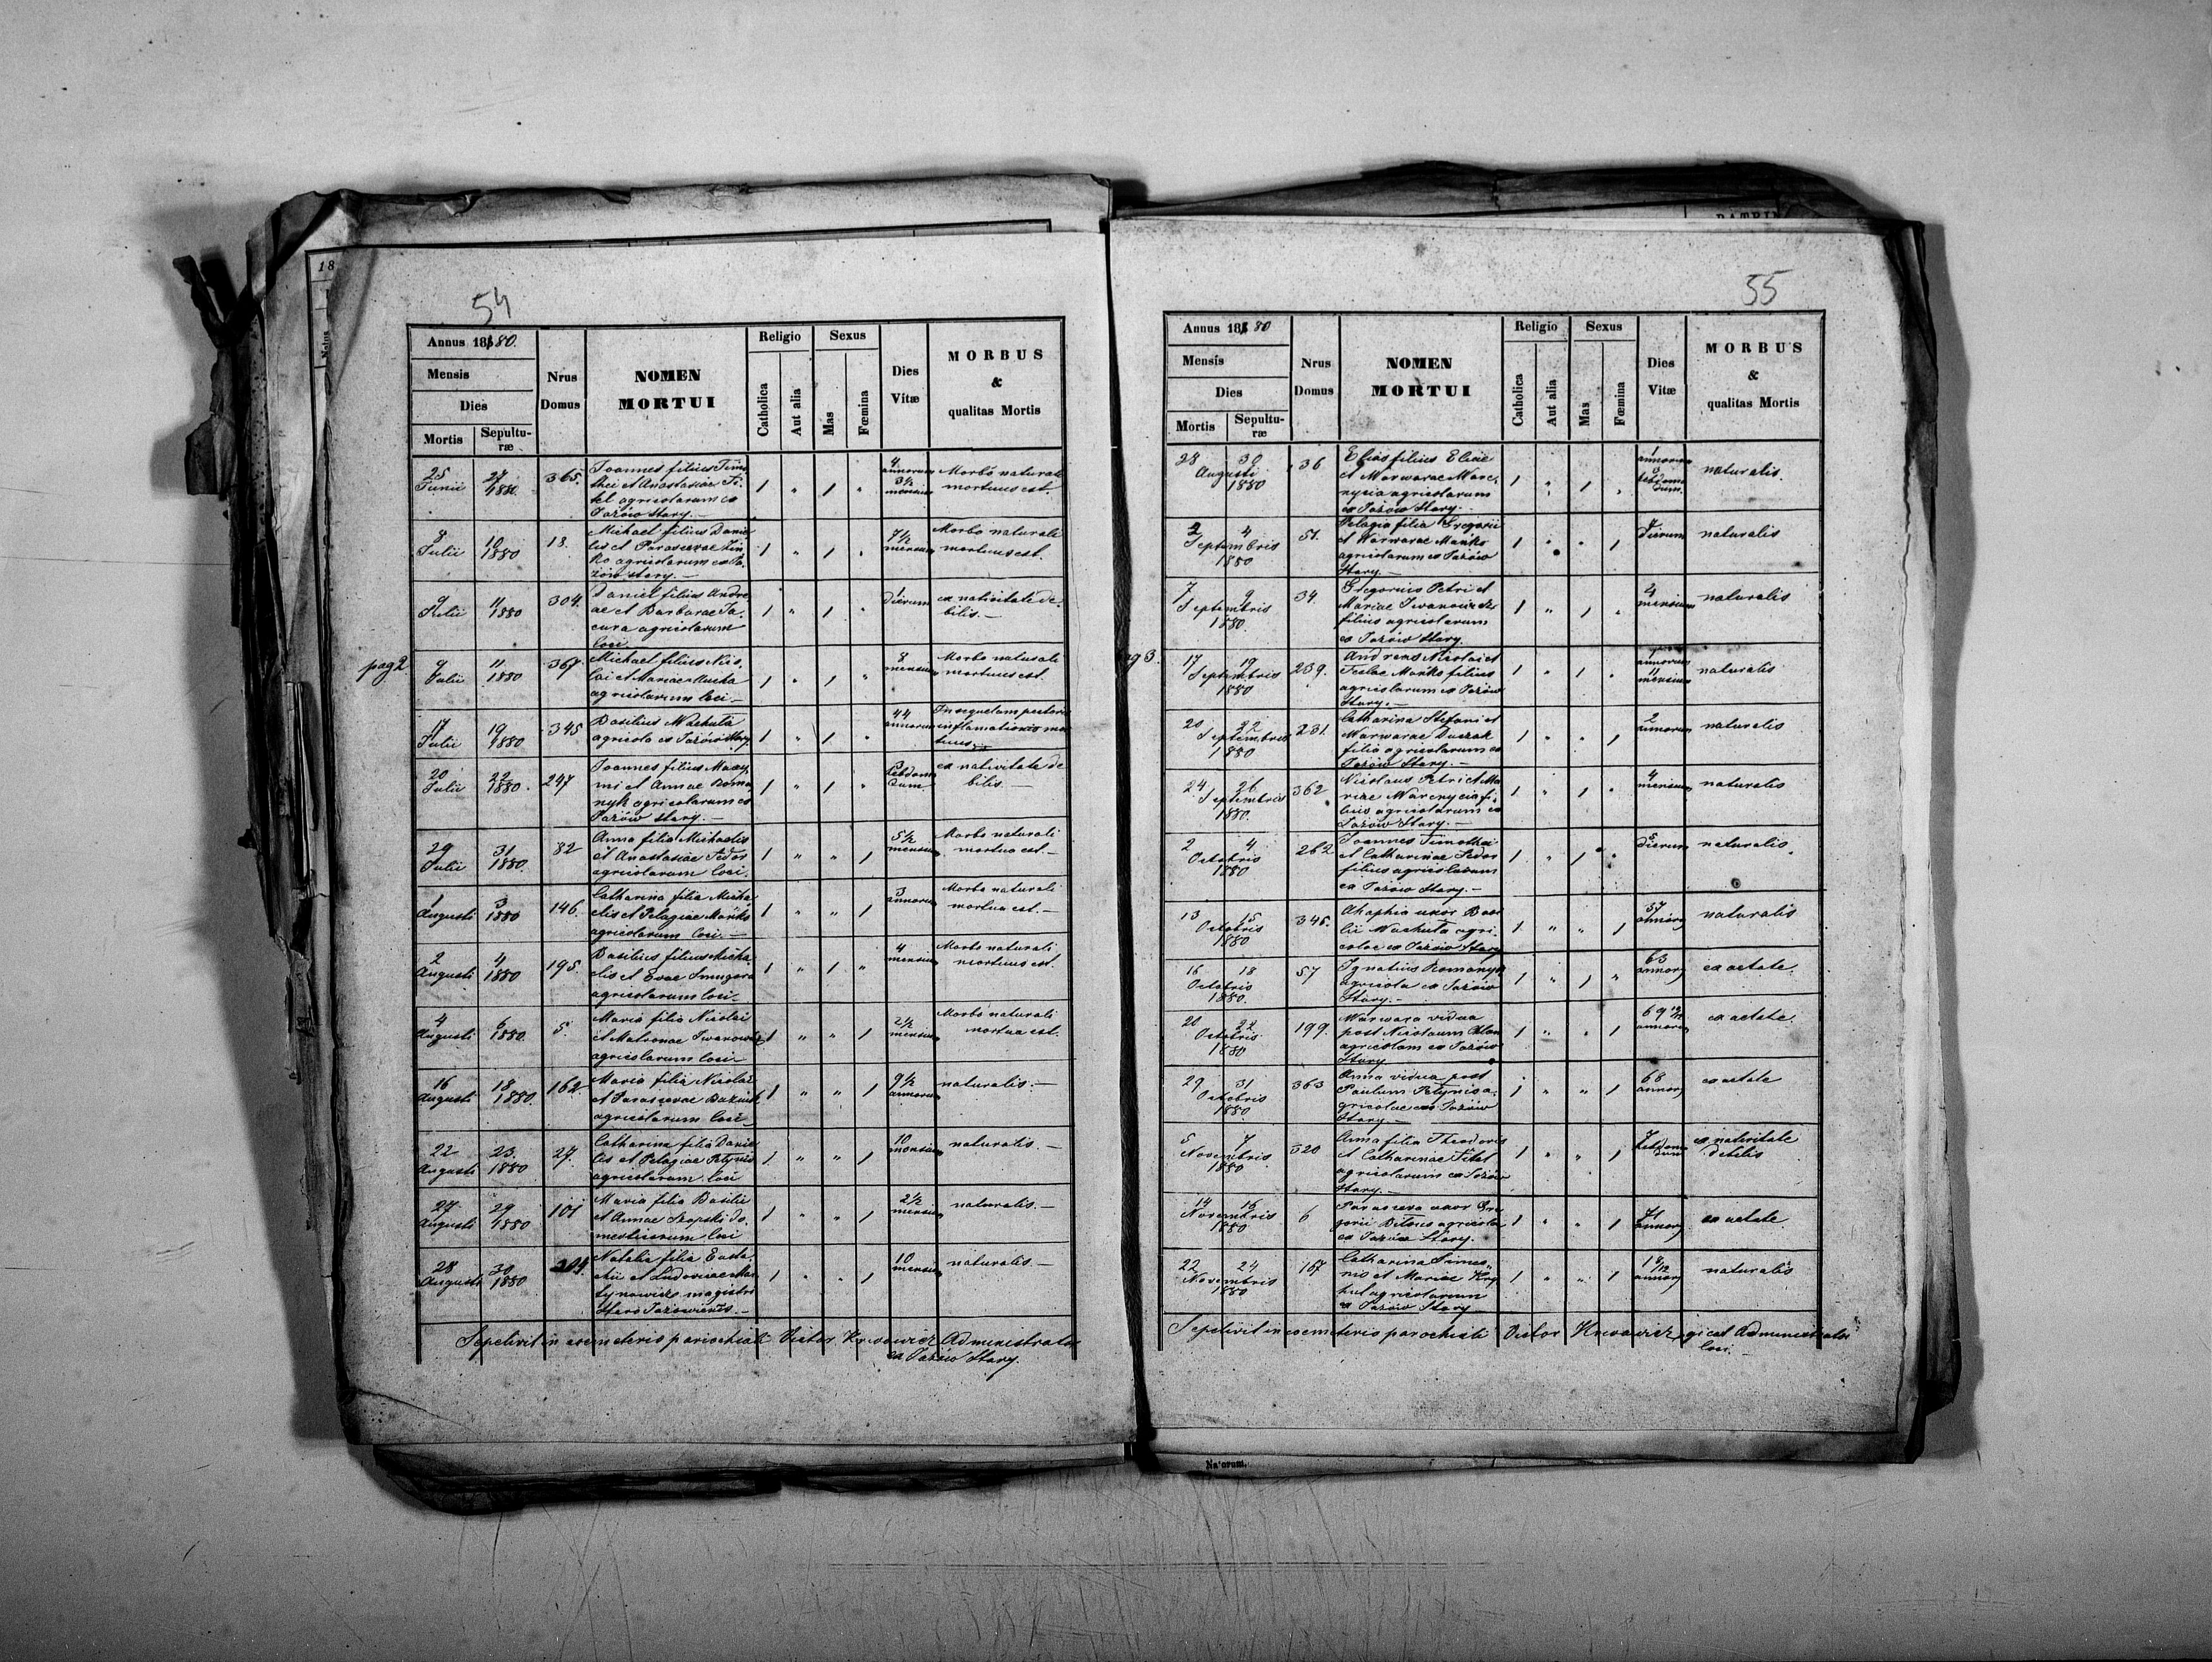 54
Annus 1880.
Mensis
Dies
Mortis
Sepulturæ
Nrus Domus
NOMEN MORTUI
Religio
Catholica
Aut alia
Sexus
Mas
Fœmina
Dies Vitæ
MORBUS & qualitas Mortis
25 Junii 27 1880 365. Joannes filius Timo- 1 " 1 " 4 annorum Morbo naturali
thei et Anastasiae Ti- 3½ mensium mortuus est.
tel agricolarum ex
Jazów Stary.—
8 Julii 10 1880 13. Michael filius Danie- 1 " 1 " 7½ mensium Morbo naturali
lis et Parascevae mortuus est.
ko agricolarum ex Ja-
zów Stary.—
9 Julii 11 1880 304. Daniel filius Andre- 1 " 1 " dierum ex nativitate de-
ae et Barbarae Ja- bilis.—
cura agricolarum
loci
pag 2
9 Julii 11 1880 367. Michael filius Nico- 1 " 1 " 8 mensium Morbo naturali
lai et Mariae mortuus est.
agricolarum loci—
17 Julii 19 1880 345 Basilius Machuta 1 " 1 " 44 annorum In sequelam pectoris
agricola ex Jazów Stary inflamationis mor-
tuus
20 Julii 22 1880. 247 Joannes filius Maxy- 1 " 1 " hebdom ex nativitate de-
mi et Annae Roma- dum bilis.—
nyk agricolarum ex
Jazów Stary.—
29 Julii 31 1880. 82 Anna filia Michaelis 1 " " 1 5½ mensium Morbo naturali
et Anastasiae Fedor mortua est.—
agricolarum loci.
1 Augusti 3 1880 146. Catharina filia Micha- 1 " " 1 3 annorum Morbo naturali
elis et Pelagiae Mańko mortua est.—
agricolarum loci.—
2 Augusti 4 1880 195. Basilius filius Micha- 1 " 1 " 4 mensium Morbo naturali
elis et Evae mortuus est.
agricolarum loci—
4 Augusti 6 1880. 5. Maria filia Nicolai 1 " " 1 2½ mensium Morbo naturali
et Matronae Iwanowicz mortua est.
agricolarum loci—
16 Augusti 18 1880. 162. Maria filia Nicolai 1 " " 1 9½ annorum naturalis.—
et Parascevae
agricolarum loci—
22 Augusti 23. 1880 27. Catharina filia Danie- 1 " " 1 10 mensium naturalis—
lis et Pelagiae Petynis
agricolarum loci
27 Augusti 29 1880 101 Maria filia Basilii 1 " " 1 2½ mensium naturalis.—
et Annae Szopski do-
mesticorum loci
28 Augusti 30 1880 204. Natalia filia Eusta- 1 " " 1 10 mensium naturalis.—
chii et Ludovicae Mar-
tynowicz magistri
Stero Jazowiensis.—
Sepelivit in coemeterio parochiali Victor Administrator
ex Jazów Stary.
55
Annus 1880
Mensis
Dies
Mortis
Sepulturæ
Nrus Domus
NOMEN MORTUI
Religio
Catholica
Aut alia
Sexus
Mas
Fœmina
Dies Vitæ
MORBUS & qualitas Mortis
28 30 Augusti 1880 36 Elias filius Eliae 1 " 1 " 1 annorum naturalis.
et Warwarae Marc- hebdoma-
nycia agricolarum dum.
ex Jazów Stary.—
2 4 Septembris 1880 51. Pelagia filia Gregorii 1 " " 1 dierum naturalis
et Warwarae Mańko
agricolarum ex Jazów
Stary.—
7 9 Septembris 1880. 34. Gregorius Petri et 1 " 1 " 4 mensium naturalis
Mariae Iwanowicz
filius agricolarum
ex Jazów Stary.
pag 3.
17 19 Septembris 1880 239. Andreas Nicolai et 1 " 1 " annorum naturalis
Teclae Mańko filius mensium
agricolarum ex Jazów
Stary.—
20 22 Septembris 1880 231. Catharina Stefani et 1 " " 1 2 annorum naturalis
Warwarae Duczak
filia agricolarum ex
Jazów Stary.—
24 26 Septembris 1880. 362 Nicolaus Petri et Ma- 1 " 1 " 4 mensium naturalis
riae Marcnycia fi-
lius agricolarum ex
Jazów Stary.—
2 4 Octobris 1880 262 Joannes Timothei 1 " 1 " 5 dierum naturalis.
et Catharinae Fedor
filius agricolarum
ex Jazów Stary.—
13 15 Octobris 1880 345. Ahaphia uxor Basi- 1 " " 1 37 annor naturalis
lii Machuta agri-
colae ex Jazów Stary
16 18 Octobris 1880. 57 Ignatius Romanyk 1 " 1 " 63 annor ex aetate.
agricola ex Jazów
Stary.—
20 22 Octobris 1880 199. Warwara vidua 1 " " 1 69 annorum ex aetate.
post Nicolaum
agricolam ex Jazów
Stary
29 31 Octobris 1880 363 Anna vidua post 1 " " 1 68 annor ex aetate
Paulum Petynis a-
gricolae ex Jazów
Stary.—
5 7 Novembris 1880 320 Anna filia Theodori 1 " " 1 hebdoma- ex nativitate
et Catharinae Titel dum debilis
agricolarum ex Jazów
Stary.—
14 16 Novembris 1880 6 Parasceva uxor Gre- 1 " " 1 71 annor ex aetate
gorii agricolae
ex Jazów Stary.
22 24 Novembris 1880 167 Catharina Simeo- 1 " " 1 annor naturalis
nis et Mariae
agricolarum
ex Jazów Stary
Sepelivit in coemeterio parochiali Victor Administrator
loci.—
Natorum.